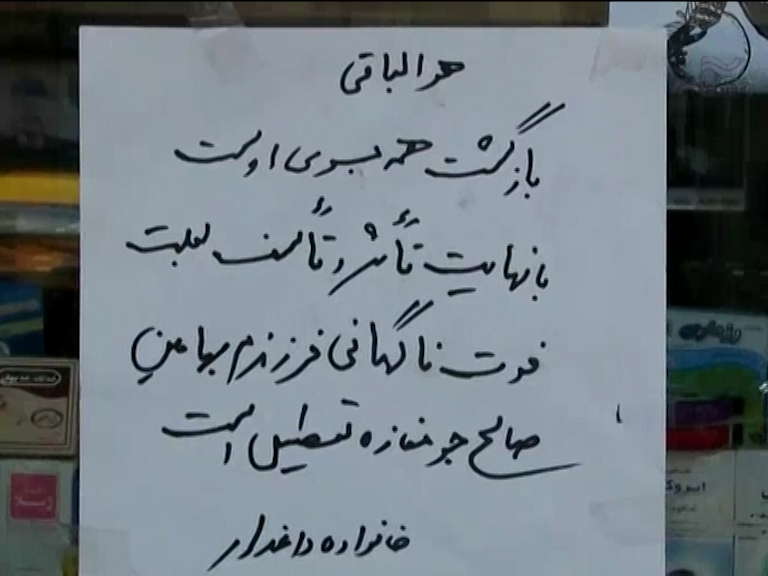 هو الباقی
بازگشت همه بسوی اوست
با نهایت تأثر و تأسف بعلت
فوت ناگهانی فرزندم بهامین
صالح جو مغازه تعطیل است
خانواده داغدار